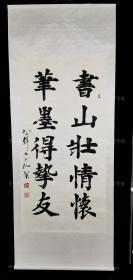 書山壯情懷
筆墨得摯友